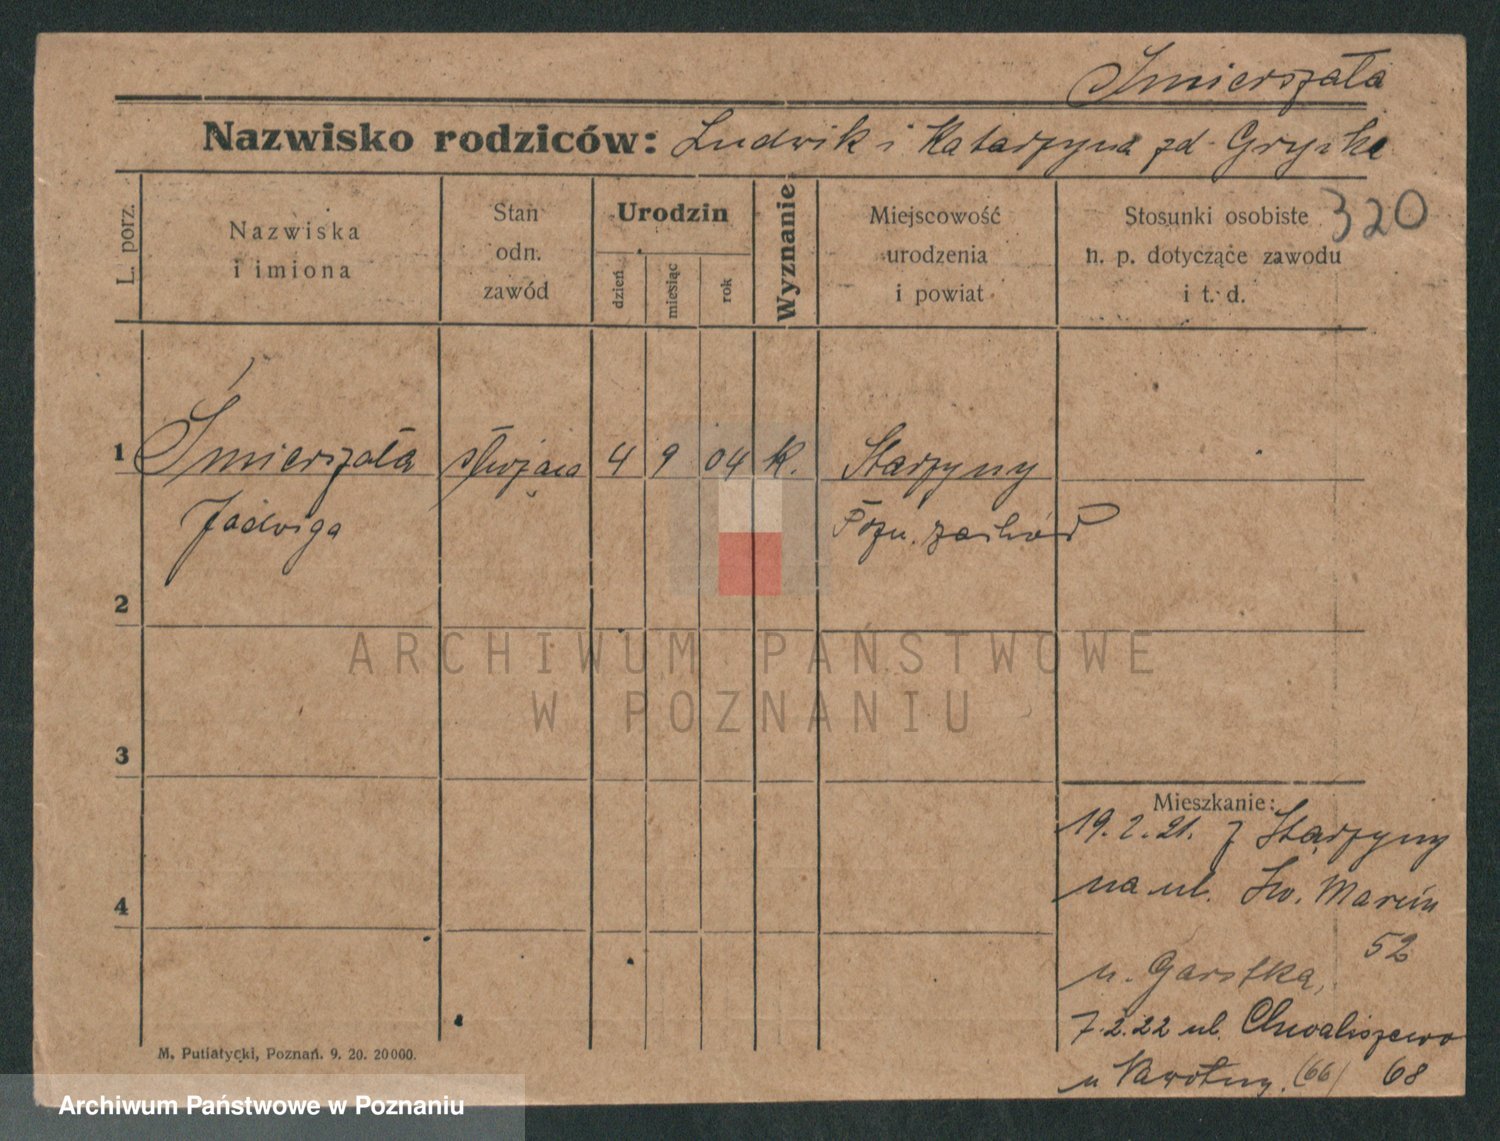 Śmierszała
Nazwisko rodziców: Ludwik i Katarzyna zd. Gryska
320
L. porz.
Nazwiska
i imiona
Stan
odn.
zawód
Urodzin
dzień
miesiąc
rok
Wyznanie
Miejscowość
urodzenia
i powiat
Stosunki osobiste
n. p. dotyczące zawodu
i t. d.
1 Śmierszała służąca 4 9 04 K. Starzyny
Jadwiga Pozn. zachód
2
3
4
ARCHIWUM PAŃSTWOWE
W POZNANIU
Mieszkanie:
19.2.21. z Starzyny
na ul. Św. Marcin
52
u. Garstka,
7.2.22 ul. Chwaliszewo
u Nawotny. (66) 68
M. Putiatycki, Poznań. 9. 20. 20000.
Archiwum Państwowe w Poznaniu